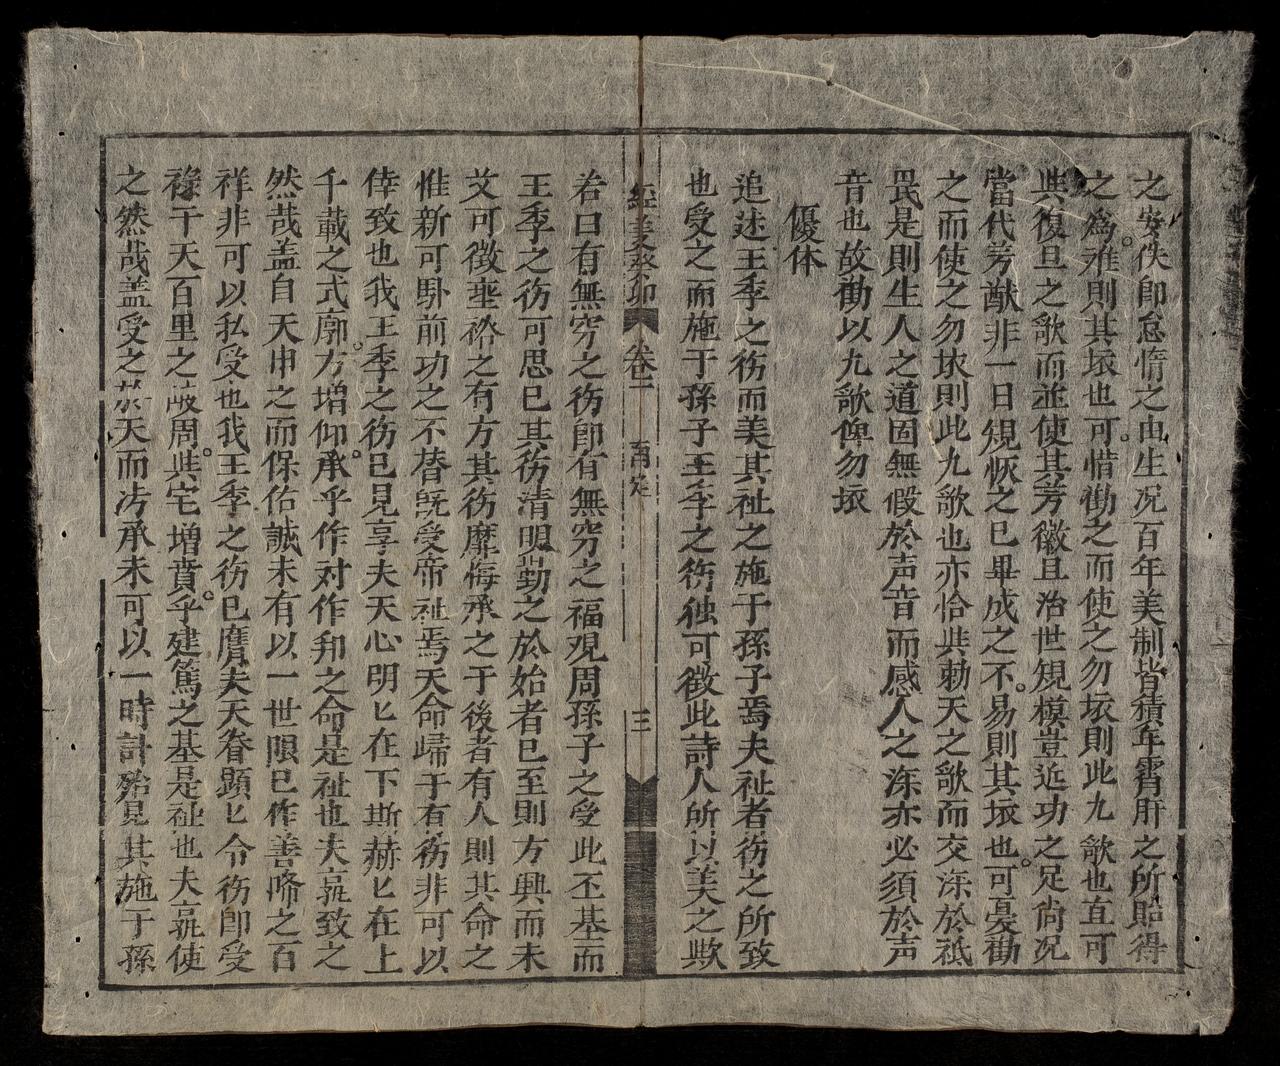 之安佚即怠惰之由生况百年美制皆積年霄肝之所貽得
之爲难則其坏也可惜勸之而使之勿坏則此九歌也直可
与復旦之歌而並使其芳徽且治世規模豈近功之足尚况
當代芳猷非一日規恢之已畢成之不易則其坏也可憂勸
之而使之勿坏則此九歌也亦恰与勅天之歌而交深於祗
畏是則生人之道固無假於声音而感人之深亦必須於声
音也故勸以九歌俾勿坏
優体
追述王季之徳而美其祉之施于孫子焉夫祉者徳之所致
也受之而施于孫子王季之徳独可徴此詩人所以美之歟
經義癸卯 卷一 三
若曰有無穷之徳即有無穷之福观周孫子之受此丕基而
王季之徳可思已其徳清明勤之於始者已至則方興而未
艾可徴垂裕之有方其徳靡悔承之于後者有人則其命之
惟新可卧前功之不替既受帝祉焉天命歸于有徳非可以
倖致也我王季之徳已見享夫天心明匕在下斯赫匕在上
千載之式廓方増仰承乎作对作邦之命是祉也夫豈致之
然哉盖自天申之而保佑誠未有以一世限已作善降之百
祥非可以私受也我王季之徳已膺夫天眷顕匕令徳即受
禄于天百里之 周与宅増賁乎建篤之基是祉也夫豈使
之然哉盖受之於天而凴承未可以一時計殆見其施于孫